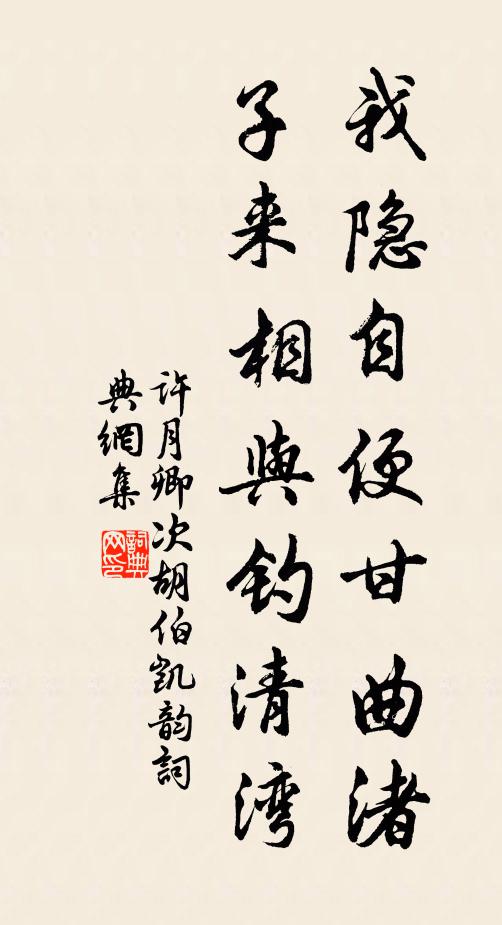 我隐自便甘曲渚
子来相與钓清湾
許月卿次胡伯凱韵詞
典網集
詞典
网印